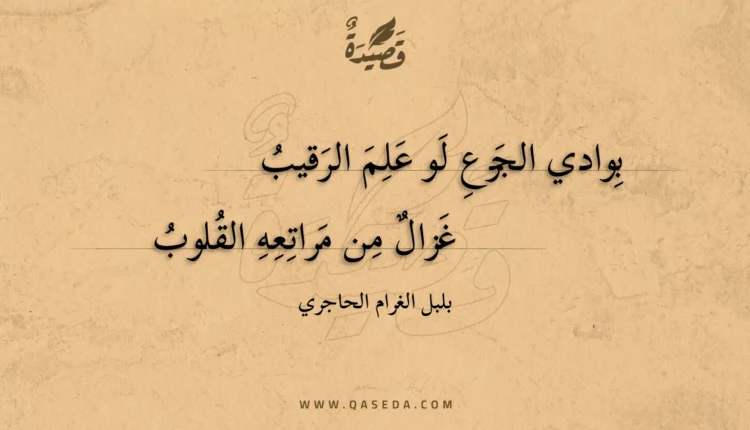 قَصِيْدَةٌ
بِوادي الجَزعِ لَو عَلِمَ الرَقيبُ
غَزالٌ مِن مَراتِعِهِ القُلوبُ
بلبل الغرام الحاجري
WWW.QASEDA.COM